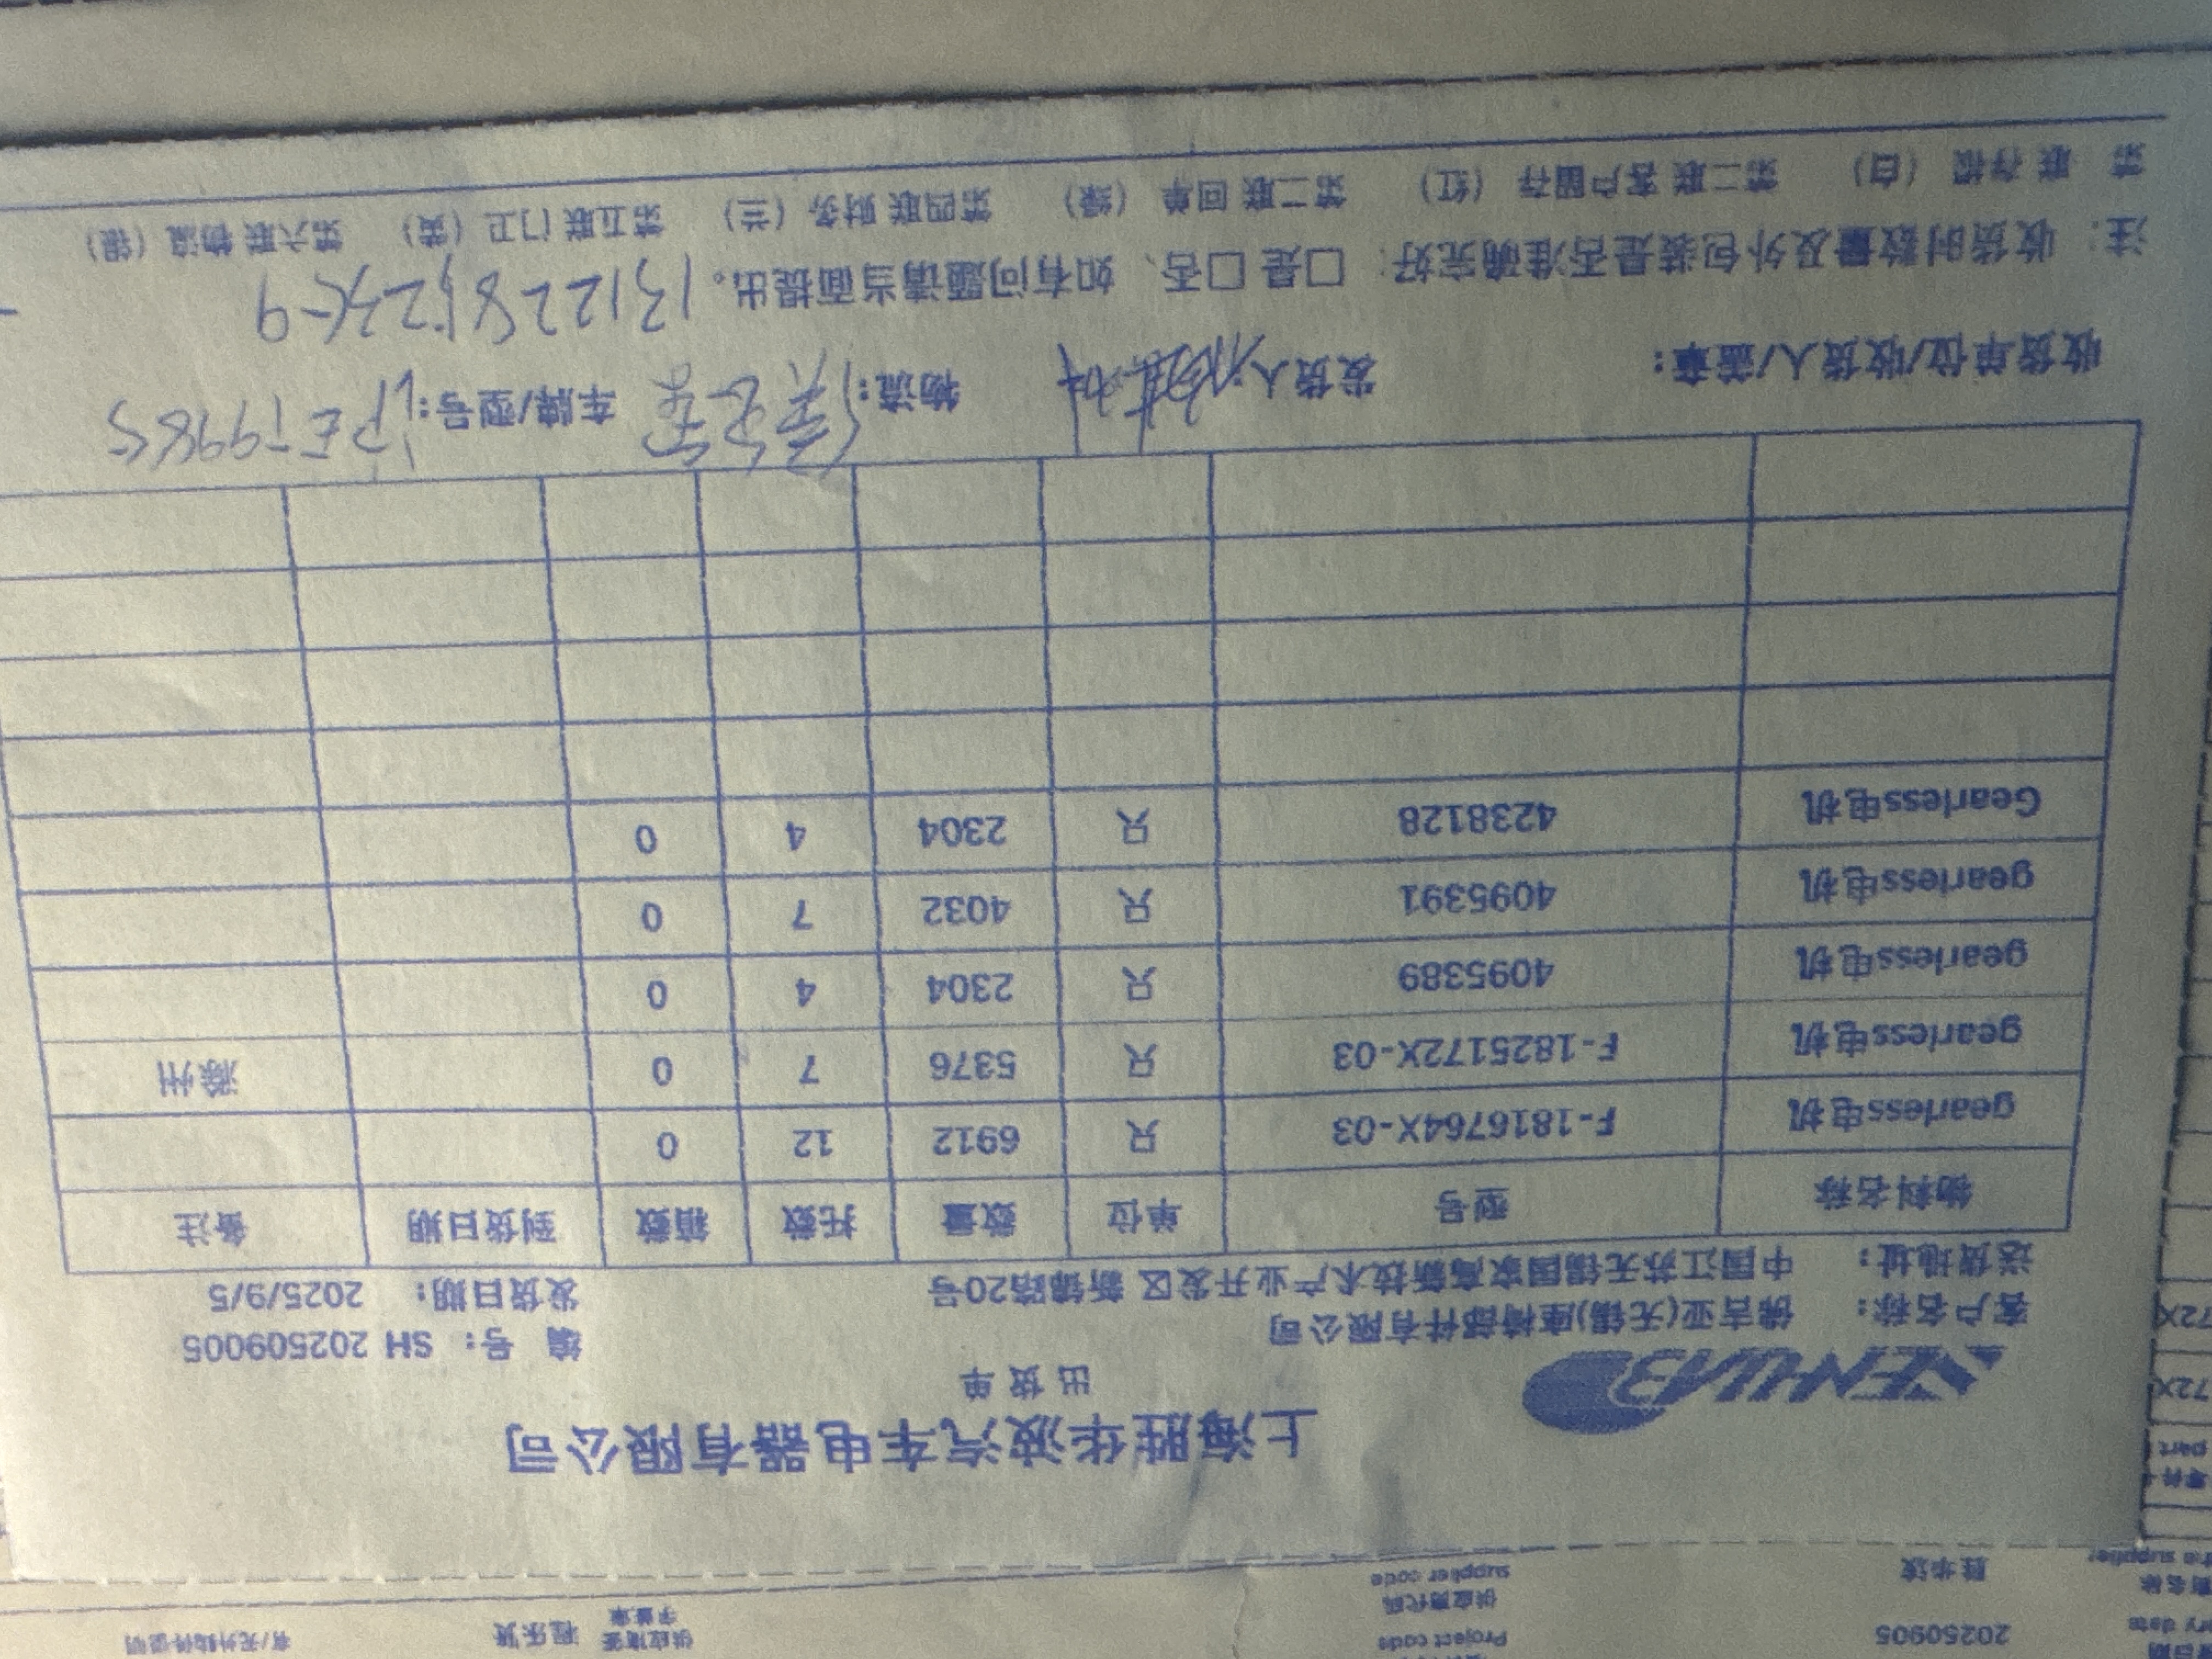 上海胜华波汽车电器有限公司
出货单
编 号：SH 202509005
客户名称： 佛吉亚(无锡)座椅部件有限公司
发货日期： 2025/9/5
送货地址： 中国江苏无锡国家高新技术产业开发区 新锦路20号
物料名称 型号 单位 数量 托数 箱数 到货日期 备注
gearless电机 F-1816764X-03 只 6912 12 0
gearless电机 F-1825172X-03 只 5376 7 0 滁州
gearless电机 4095389 只 2304 4 0
gearless电机 4095391 只 4032 7 0
Gearless电机 4238128 只 2304 4 0
收货单位/收货人/盖章： 发货人 物流： 车牌/型号：沪ET9985
注： 收货时数量及外包装是否准确完好：□是□否、如有问题请当面提出。
第 联 存根 （白） 第二联 客户留存 （红） 第二联 回单 （绿） 第四联 财务 （兰） 第五联 门卫 （黄） 第六联 物流 （银）
20250905
Project code
供应商代码
supplier code
胜华波
有/无外购件说明
72X
72X
part